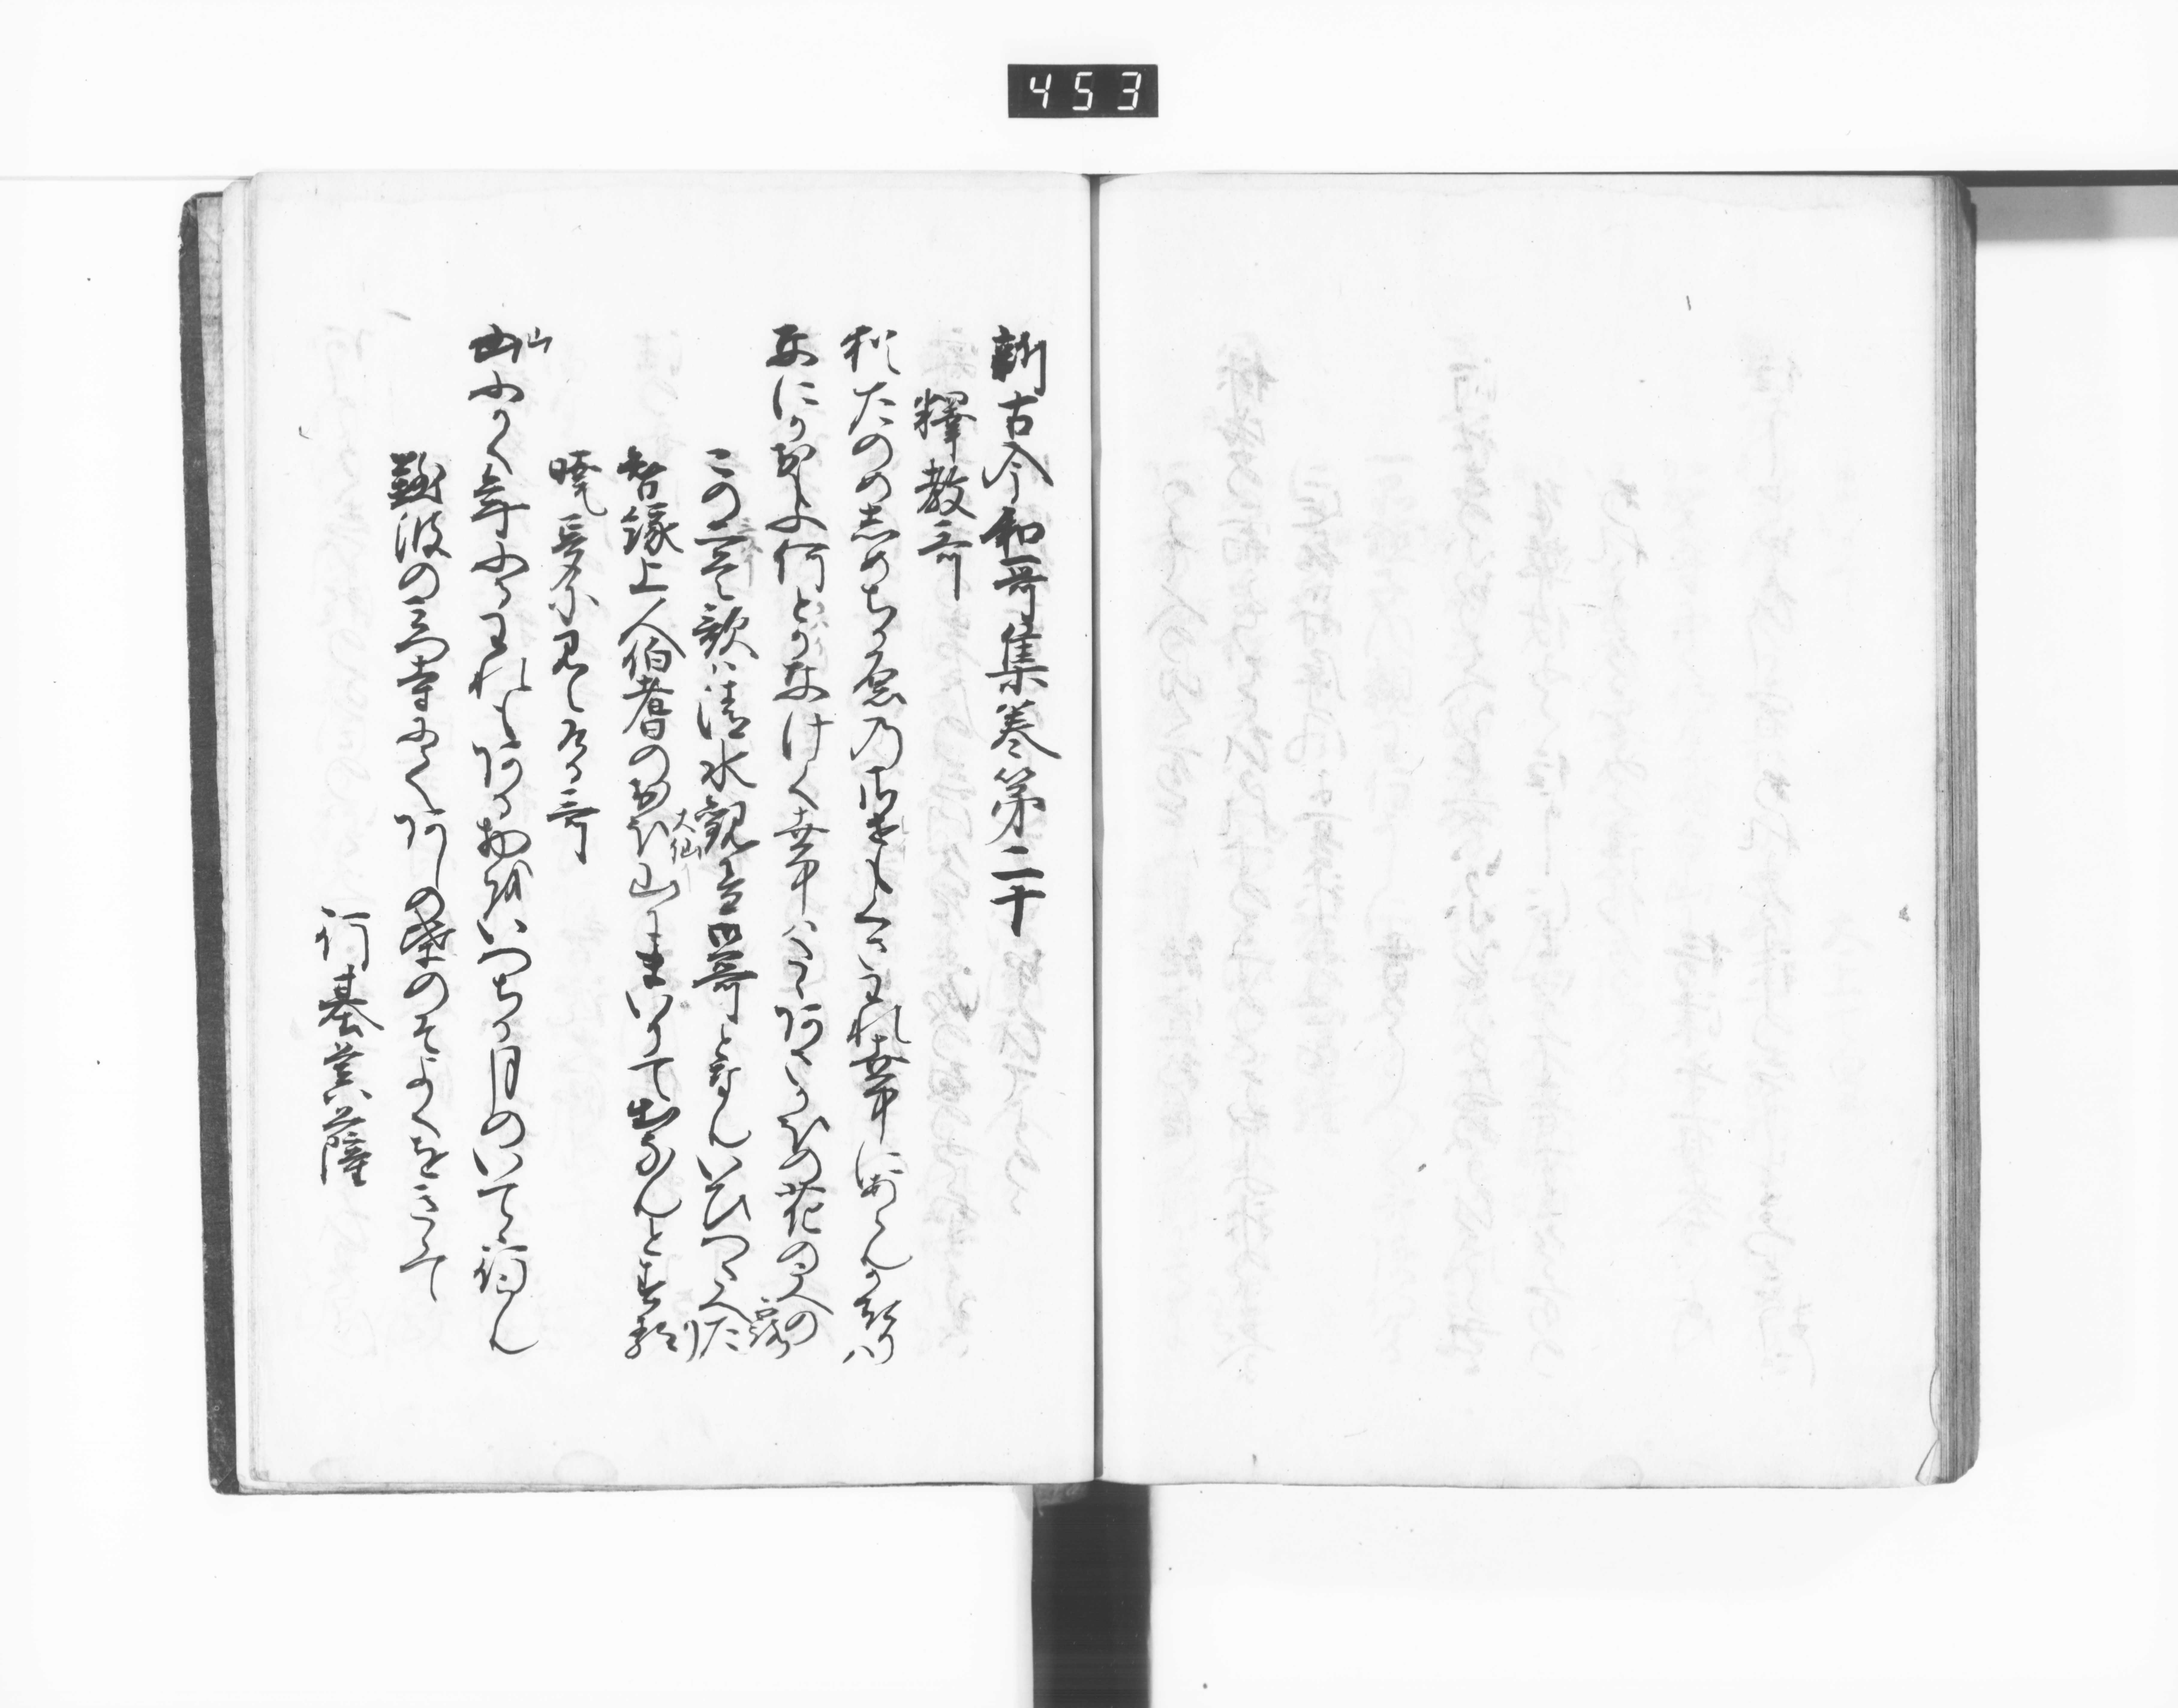 453
新古今和哥集巻第二十
釋教哥
猶たのめしめちか原のさせもくさわれ世中にあらんかきりは
なにかおもふ何とかなけく世中はたゝあさかほの花のうへの露
この二首歌は清水観音御哥となんいひつたへたり
智縁上人伯耆のおほ山にまいりて出なんとしける
大仙
暁夢に見えける哥
山
山ふかく年ふるわれもあるものをいつちか月のいてゝ行らん
難波のみ寺にてあしの葉のそよくをきゝて
行基菩薩